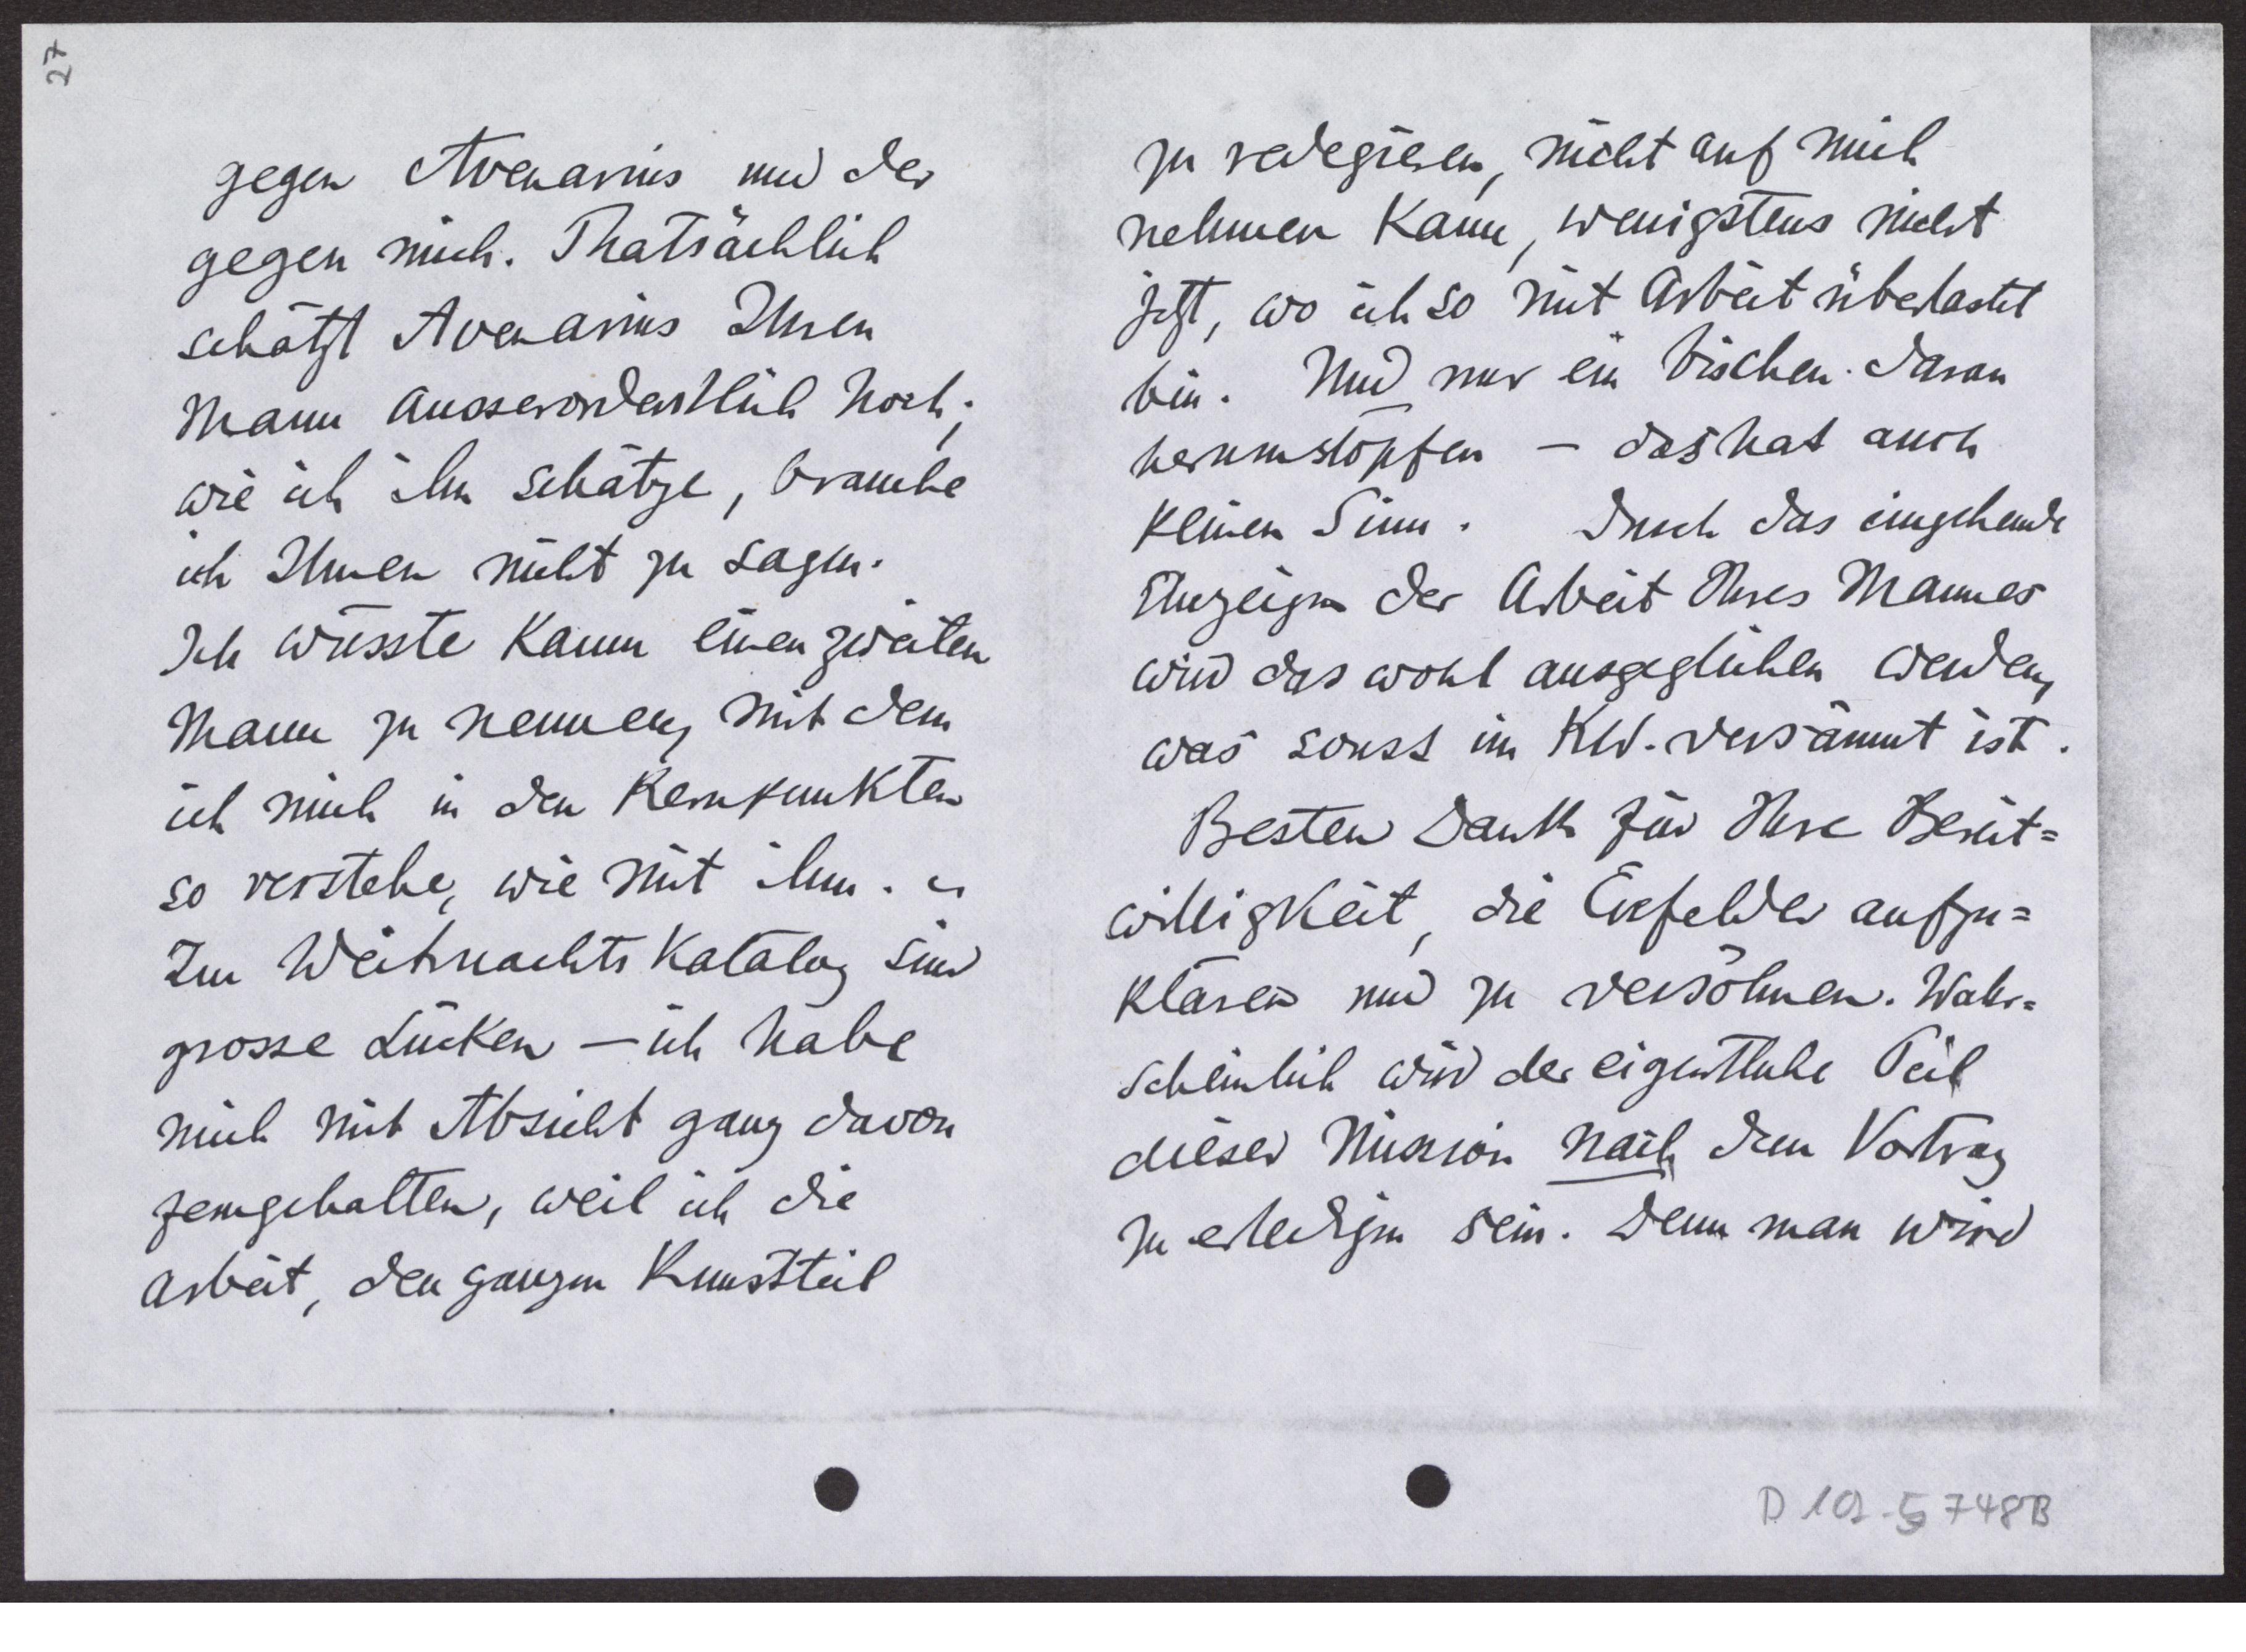 27
gegen Avenarius und der
gegen mich. Thatsächlich
schätzt Avenarius Ihren
Mann ausserordentlich hoch;
wie ich ihn schätze, brauche
ich Ihnen nicht zu sagen.
Ich wüsste kaum einen zweiten
Mann zu nennen, mit dem
ich mich in den Kernpunkten
so verstehe, wie mit ihm.
Im Weihnachtskatalog sind
grosse Lücken – ich habe
mich mit Absicht ganz davon
ferngehalten, weil ich die
Arbeit, den ganzen Kunstteil
zu redegieren, nicht auf mich
nehmen kann, wenigstens nicht
jetzt, wo ich so mit Arbeit überlastet
bin. Und nur ein bischen daran
herumstopfen – das hat auch
keinen Sinn. Durch das eingehende
Anzeigen der Arbeit Ihres Mannes
wird das wohl ausgeglichen werden,
was sonst im KW. versäumt ist.
Besten Dank für Ihre Bereit=
willigkeit, die Crefelder aufzu=
klären und zu versöhnen. Wahr=
scheinlich wird der eigentliche Teil
dieser Mission nach dem Vortrag
zu erledigen sein. Denn man wird
D 102-5748B